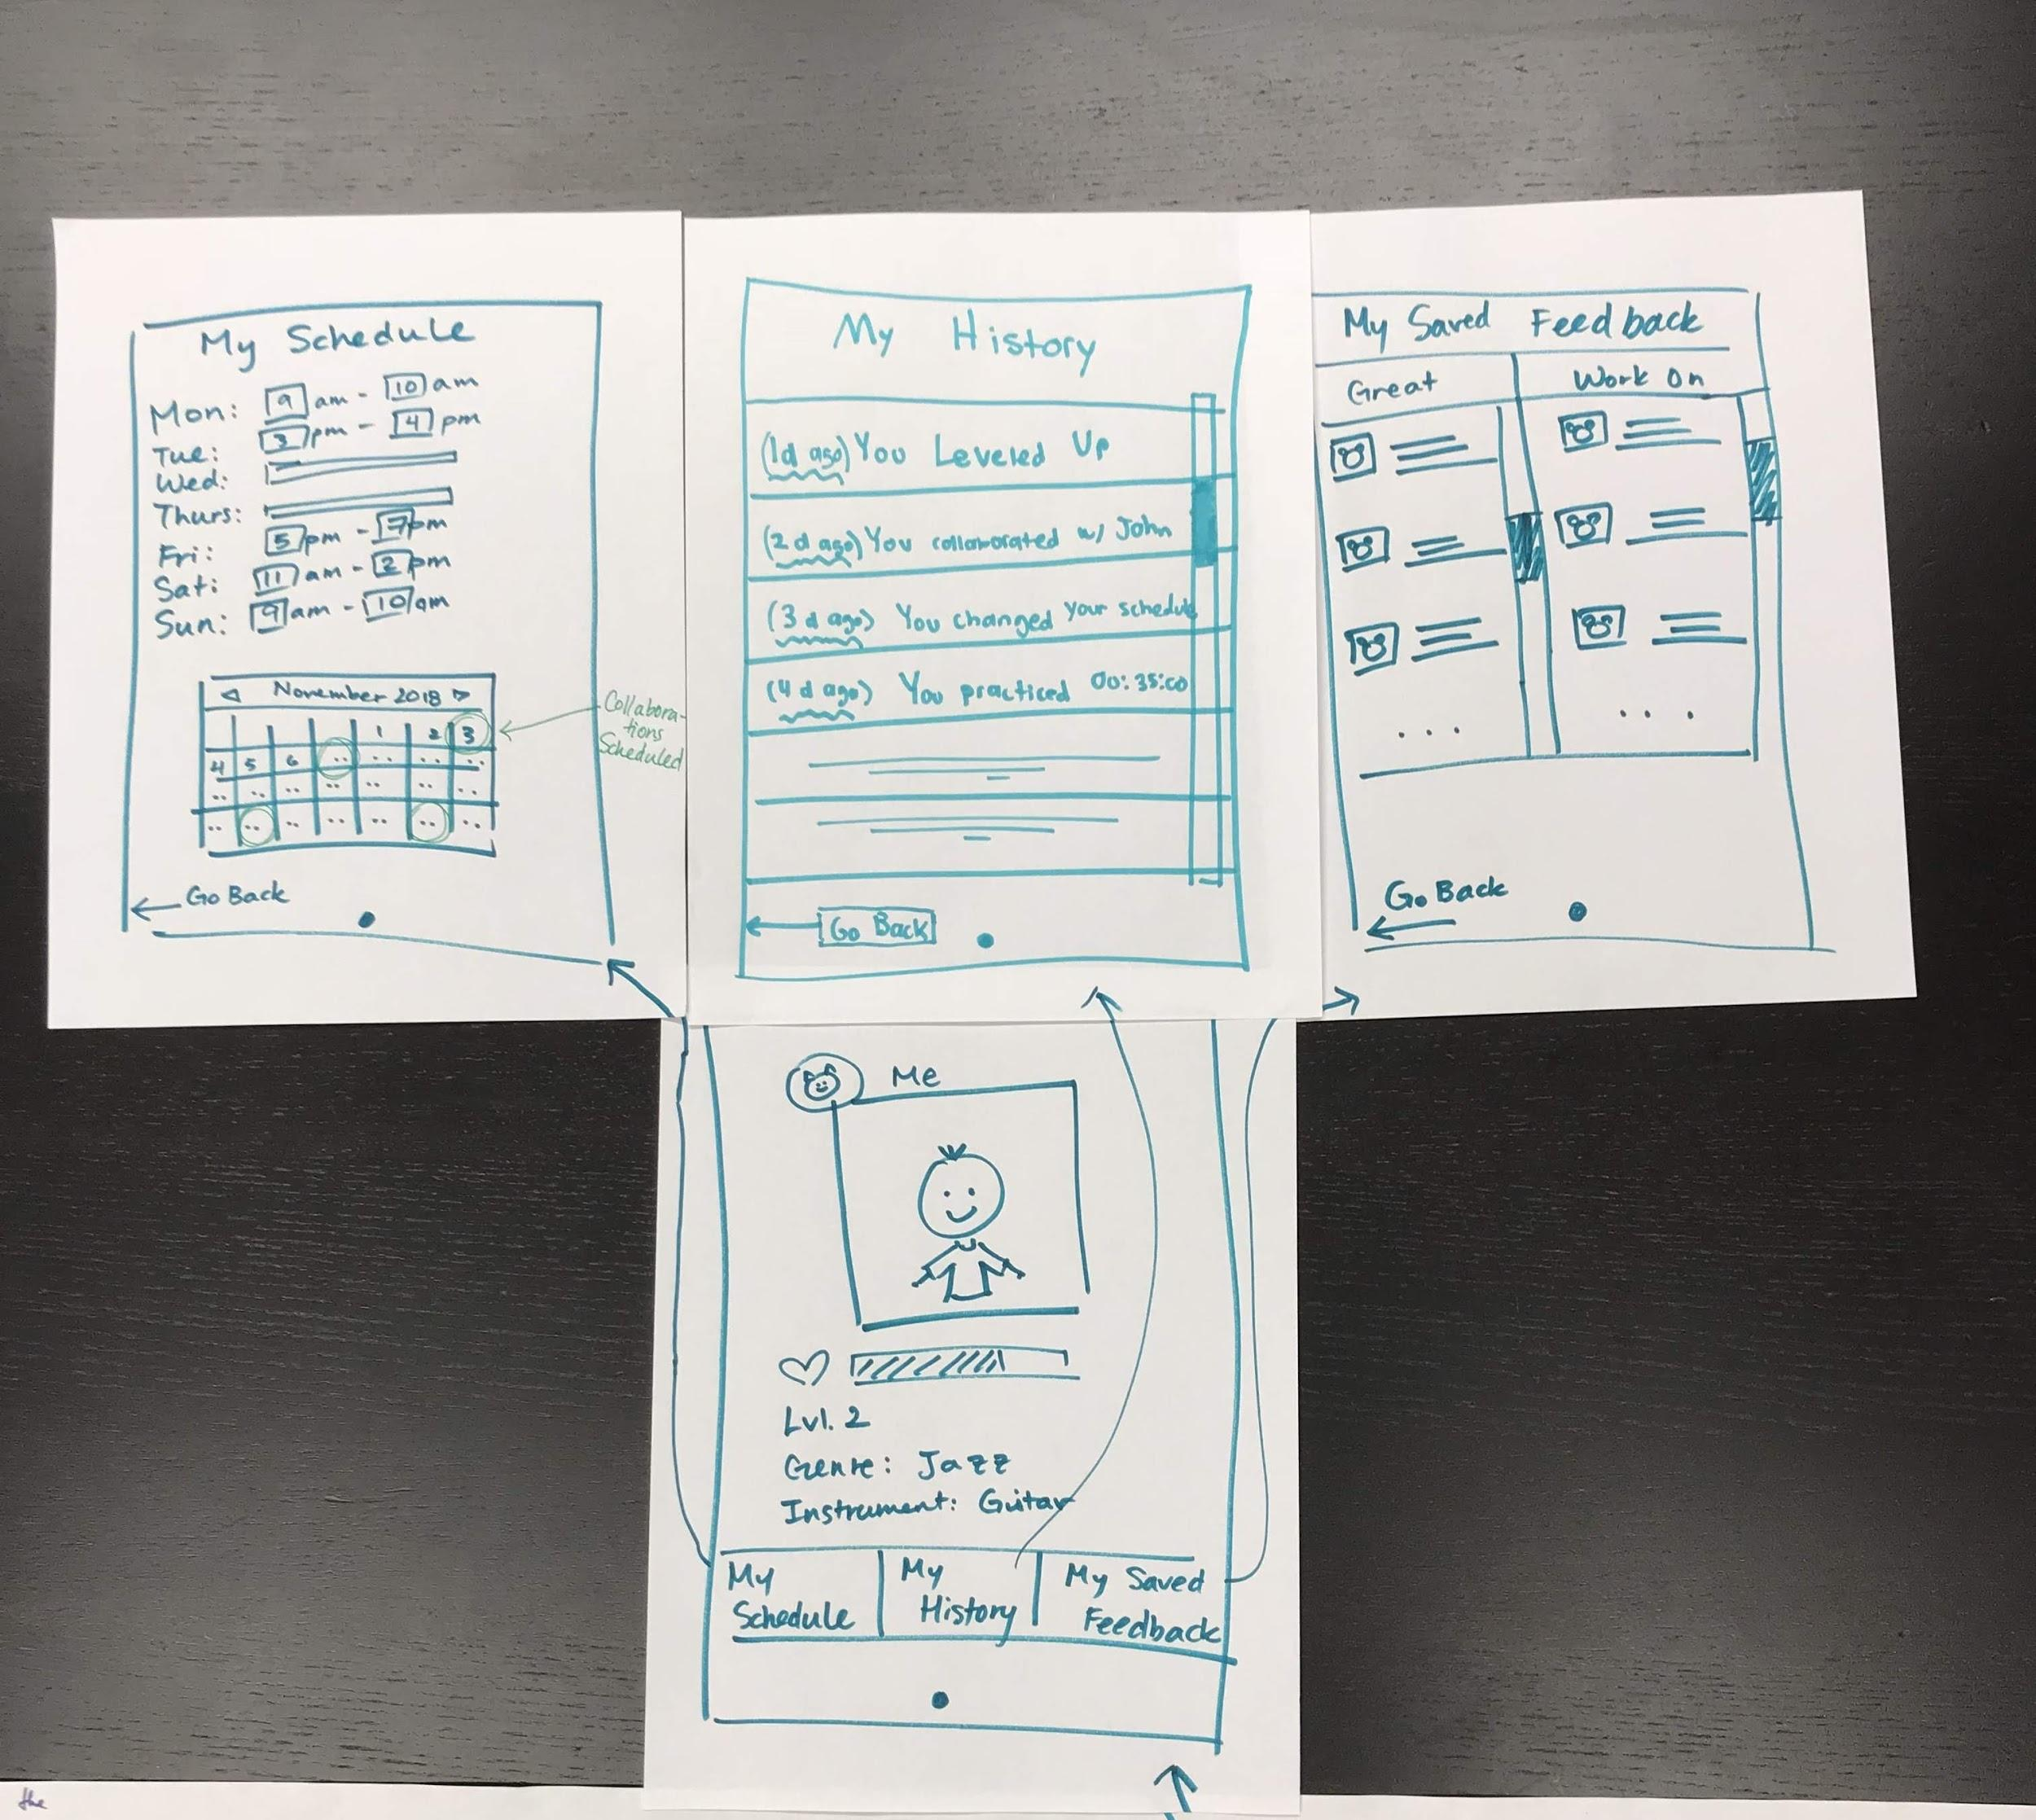 My Schedule
Mon: 9 am - 10 am
Tue: 3 pm - 4 pm
Wed:
Thurs:
Fri: 5 pm - 7 pm
Sat: 11 am - 2 pm
Sun: 9 am - 10 am
November 2018
1 2 3
4 5 6
Collabora-
tions
Scheduled
Go Back
My History
(1d ago) You Leveled Up
(2 d ago) You collaborated w/ John
(3 d ago) You changed your schedule
(4 d ago) You practiced 00:35:00
Go Back
My Saved Feedback
Great
Work On
...
...
Go Back
Me
Lvl. 2
Genre: Jazz
Instrument: Guitar
My
Schedule
My
History
My Saved
Feedback
the